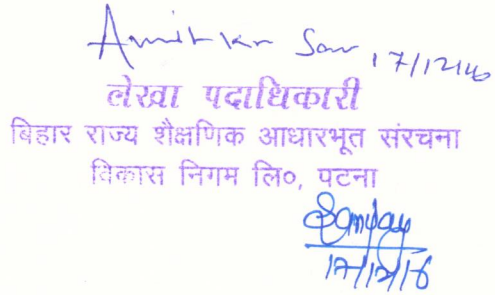 Amit Kr Sav 17/12/16
लेखा पदाधिकारी
बिहार राज्य शैक्षणिक आधारभूत संरचना
विकास निगम लि०, पटना
Sanjay
17/12/16